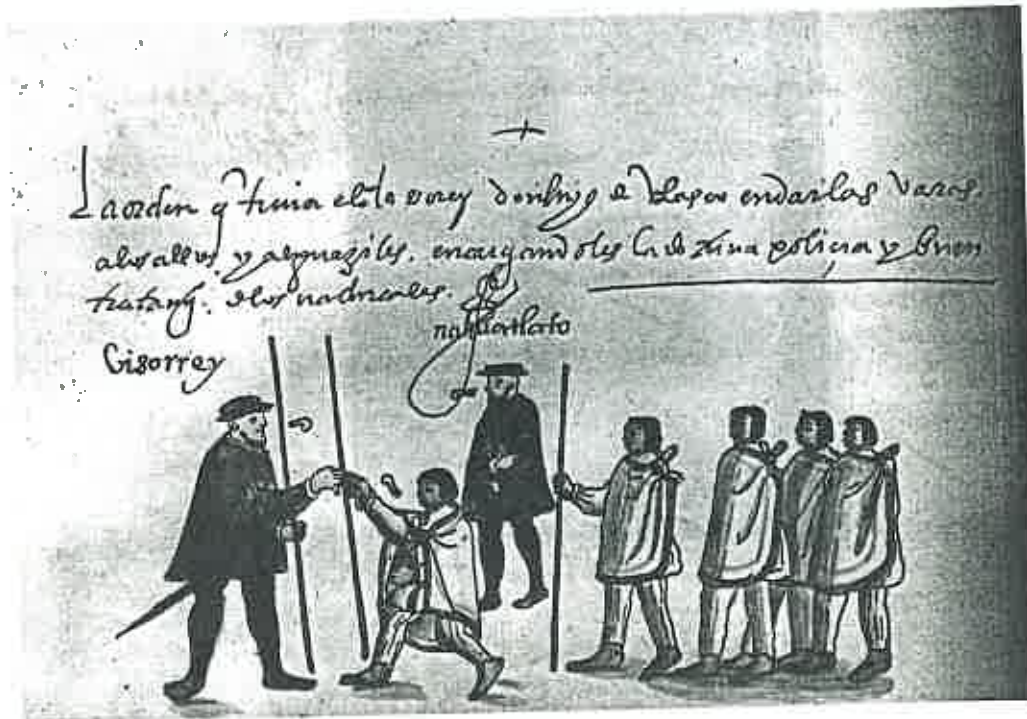 La orden q̃ tenia el yllo vorey don luys de Velasco en dar las varas
a los alldes y alguaziles. encargandoles la doctrina policia y buen
tratamyº. de los naturales.
nahuatlato
Visorrey